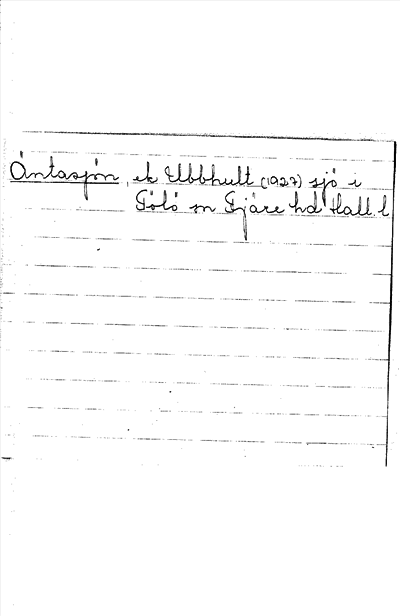 Öntasjön, ek Ubbhult (1927) sjö i
Fölö sn Fjäre hd Hall. l